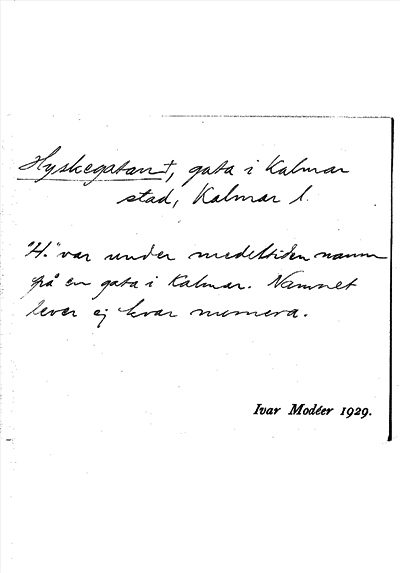 Hyskegatan †, gata i Kalmar
stad, Kalmar l.
"H." var under medeltiden namn
på en gata i Kalmar. Namnet
lever ej kvar numera.
Ivar Modéer 1929.